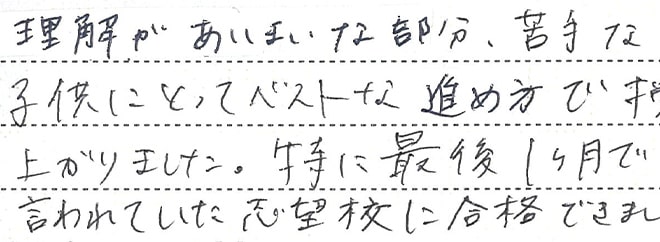 理解があいまいな部分、苦手な
子供にとってベストな進め方で
上がりました。特に最後1ヶ月で
言われていた志望校に合格できまし